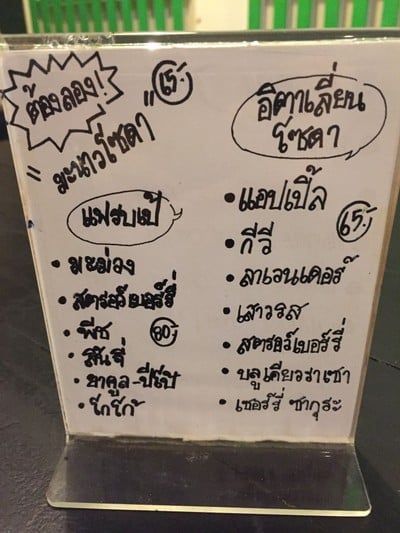 ต้องลอง!
"มะนาวโซดา" 65.-
แฟรบเป้
• มะม่วง
• สตรอว์เบอร์รี่
• พีช 80.-
• ลิ้นจี่
• ยาคูล-ปีโป้
• โกโก้
อิตาเลี่ยน
โซดา
• แอปเปิ้ล
• กีวี 65.-
• ลาเวนเดอร์
• เสาวรส
• สตรอว์เบอร์รี่
• บลูเคียวราเซา
• เชอร์รี่ ซากุระ